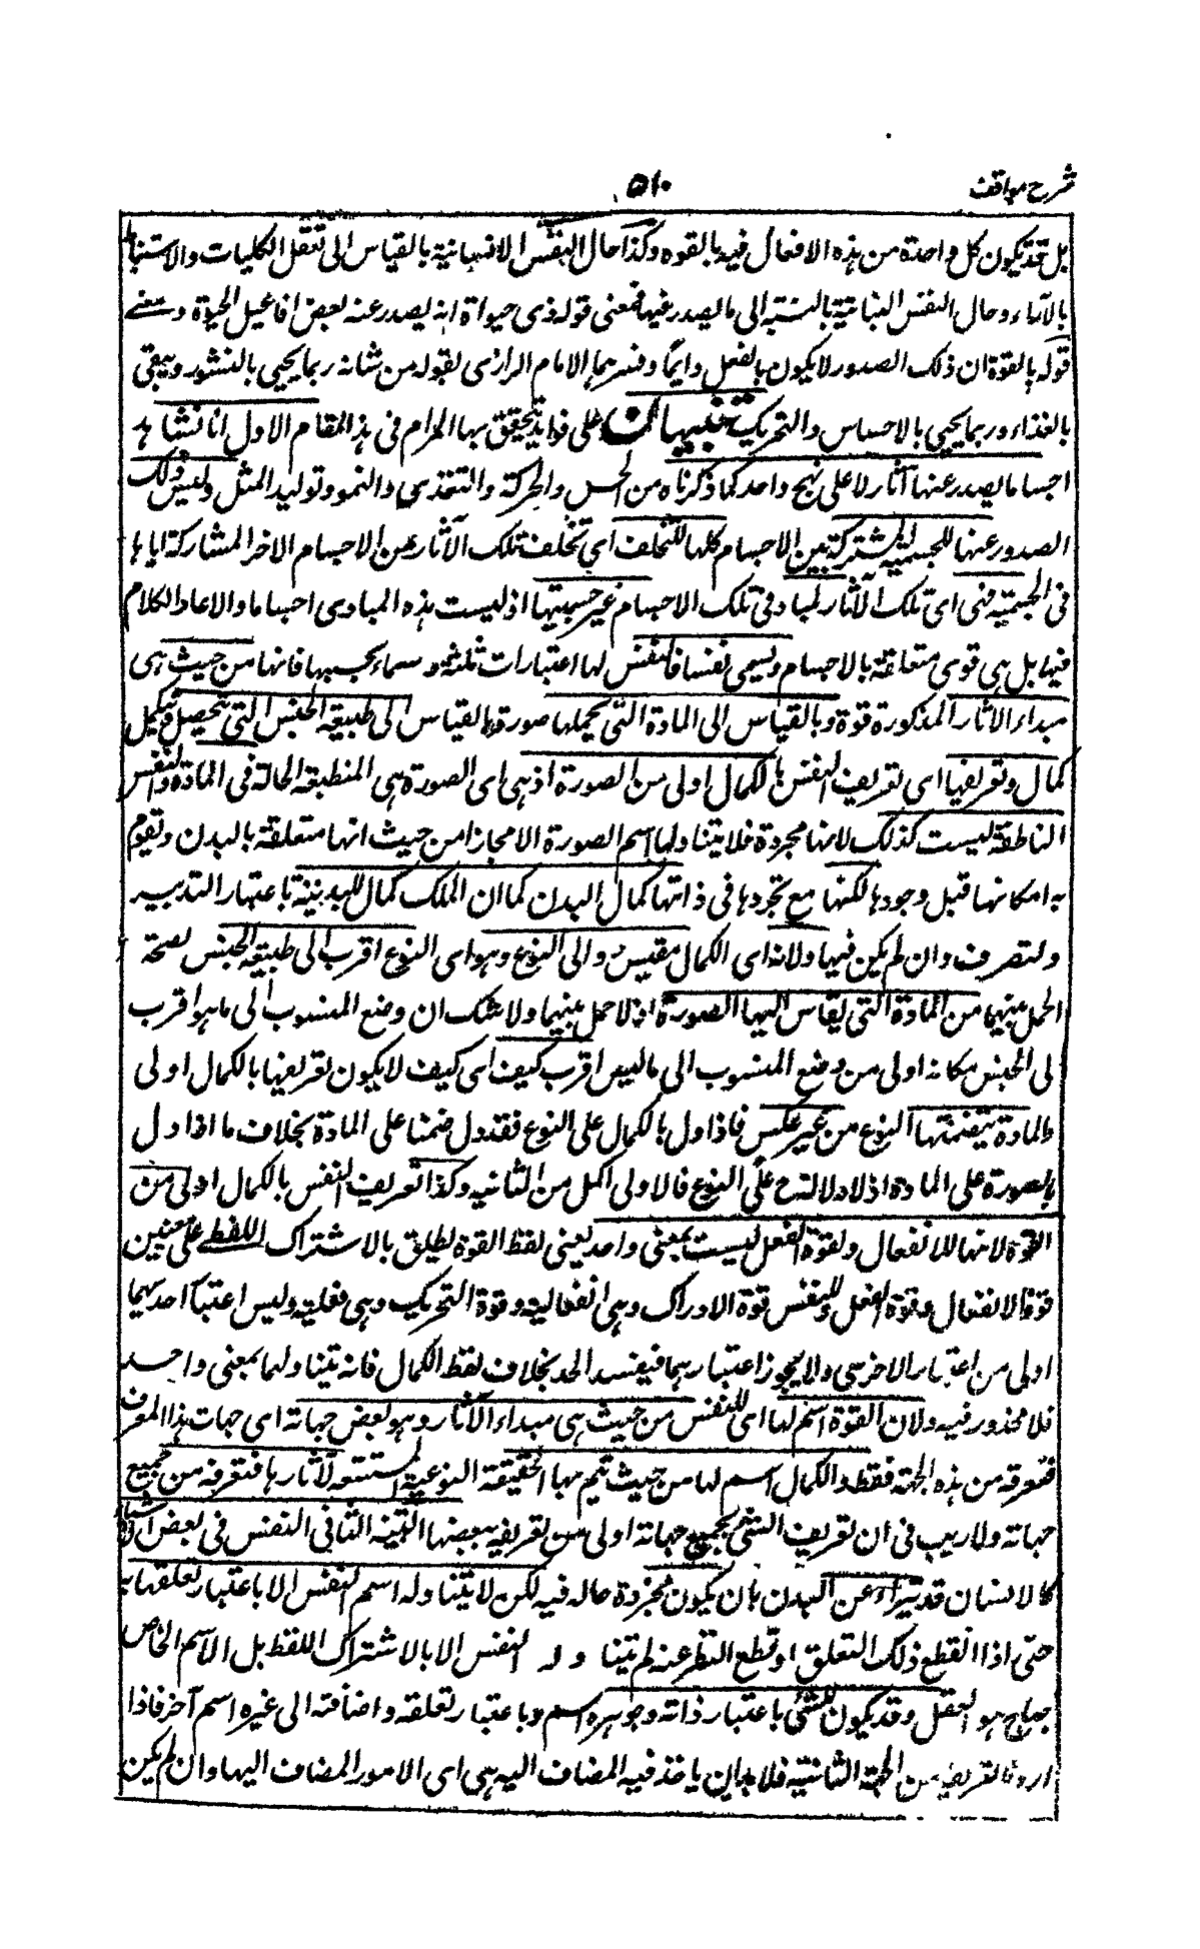 شرح مواقف
٥١٠
بل قد يكون كل واحدة من هذه الافعال فيه بالقوه وكذا حال النفس الانسانية بالقياس الى تعقل الكليات والاستنباط
بالآراء وحال النفس النباتية بالنسبة الى ما يصدر عنها فمعنى قوله ذى حيواة انه يصدر عنه بعض افاعيل الحيوة ومعنے
قوله بالقوة ان ذلك الصدور لا يكون بالفعل دايمًا وفسرهما الامام الرازى بقوله من شانه ربما يحيى بالنشور ويبقى
بالغذاء وربما يحيى بالاحساس والتحريك تنبيهات على فوايد يتحقق بها المرام فى هذا المقام الاول انا نشاهد
اجساما يصدر عنها آثار لا على نهج واحد كما ذكرناه من الحس والحركة والتغذى والنمو وتوليد المثل وليس ذلك
الصدور عنها للجسمية المشتركة بين الاجسام كلها للتخلف اى تخلف تلك الآثار عن الاجسام الاخر المشاركة اياها
فى الجسمية فهى اى تلك الآثار لمباد فى تلك الاجسام غير جسميتها اذ ليست هذه المبادى اجساما والا عاد الكلام
فيها بل هى قوى متعلقة بالاجسام ويسمى نفسا فالنفس لها اعتبارات ثلثة وسماء بحسبها فانها من حيث هى
مبداء الاثار المذكورة قوة وبالقياس الى المادة التى يحملها صورة وبالقياس الى طبيعة الجنس التى يتحصل ويتكمل
كمال وتعريفها اى تعريف النفس بالكمال اولى من الصورة اذ هى اى الصورة هى المنطبعة الحالة فى المادة والنفس
الناطقة ليست كذلك لانها مجردة فلا يتناولها اسم الصورة الا مجازا من حيث انها متعلقة بالبدن وتقوم
به امكانها قبل وجودها لكنها مع تجردها فى ذاتها كمال البدن كما ان الملك كمال للمدينة باعتبار التدبير
ولتصرف وان لم يكن فيها ولانه اى الكمال مقيس والى النوع وهو اى النوع اقرب الى طبيعة الجنس لصحة
الحمل بينهما من المادة التى يقاس اليها الصورة اذ لا حمل بينهما ولا شك ان وضع المنسوب الى ما هو اقرب
لى الجنس مكانه اولى من وضع المنسوب الى ما ليس اقرب كيف اى كيف لا يكون تعريفها بالكمال اولى
والمادة يتضمنها النوع من غير عكس فاذا ول بالكمال على النوع فقد دل ضمنا على المادة بخلاف ما اذا ول
بالصورة على المادة اذ لا دلالة ح على النوع فالاولى اكمل من الثانيه وكذا تعريف النفس بالكمال اولى من
القوة لانها للانفعال ولقوة الفعل ليست بمعنى واحد يعنى لفظ القوة يطلق بالاشتراك اللفظے على معنيين
قوة الانفعال وقوة الفعل وللنفس قوة الادراك وهى انفعالية وقوة التحريك وهى فعلية وليس اعتبار احدهما
اولى من اعتبار الاخرى ولا يجوز اعتبارهما فيفسد الحد بخلاف لفظ الكمال فانه يتناولهما بمعنى واحد
فلا محذور فيه ولان القوة اسم لها اى للنفس من حيث هى مبداء الآثار وهو بعض جهاته اى جهات هذا المعرف
فتعرفه من هذه الجهة فقط والكمال اسم لها من حيث يتم بها الحقيقة النوعية المستتبعة لآثارها فتعرفه من جميع
جهاته ولا ريب فى ان تعريف الشئ بجميع جهاته اولى من تعريفه ببعضها التنبيه الثانى النفس فى بعض اشياء
كالانسان قد تتبراء عن البدن بان يكون مجردة حاله فيه لكن لا يتناوله اسم النفس الا باعتبار تعلقها به
حتى اذا انقطع ذلك التعلق او قطع النظر عنه لم يتنا وله النفس الا بالاشتراك اللفظ بل الاسم الخاص
بها ح هو العقل وقد يكون للشئ باعتبار ذاته وجوهره اسم وباعتبار تعلقه واضافته الى غيره اسم آخر فاذا
اردنا تعريفه من الجهة الثانية فلا بد ان ياخذ فيه المضاف اليه هى اى الامور المضاف اليها وان لم يكن